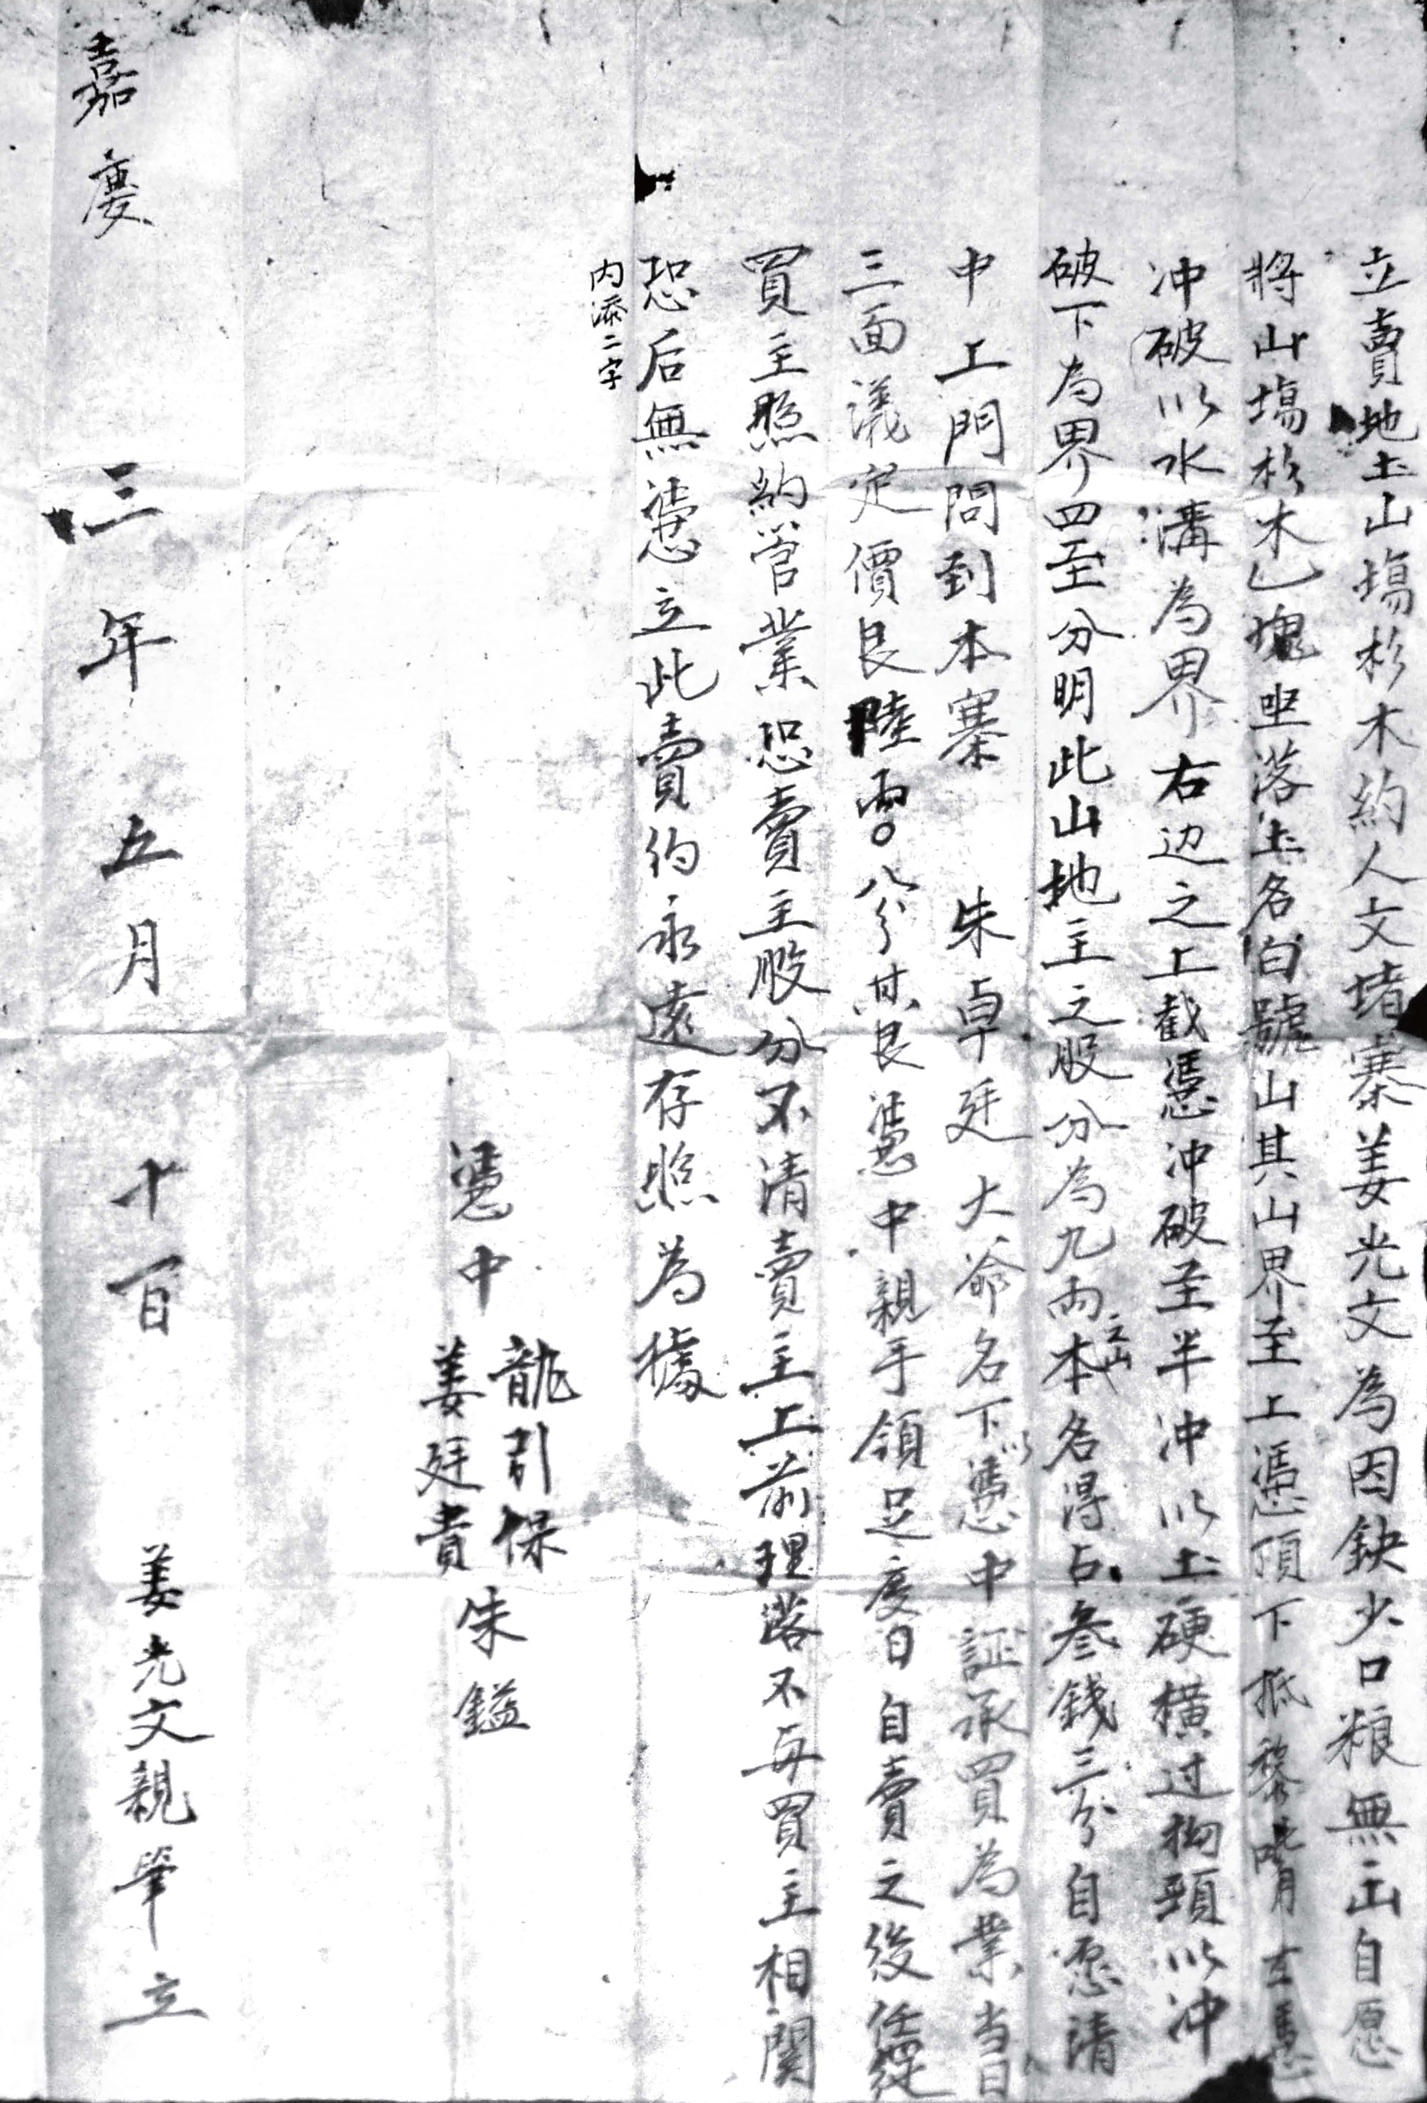 立賣地土山塲杉木約人文堵寨姜光文為因缺少口粮無出自愿
將山塲杉木乙塊坐落土名白號山其山界至上憑頂下抵黎嘴左憑
冲破以水溝為界右边之上截憑冲破至半冲以土硬橫过拗頭以冲
破下為界四至分明此山地主之股分為九両之山本名得占叁錢三分自愿請
中上門問到本寨朱卓廷大爺名下以憑中証承買為業當日
三面議定價艮陸両〇八分其艮憑中親手領足度日自賣之後任從
買主照約管業恐賣主股分不清賣主上前理落不与買主相関
恐后無憑立此賣約永遠存照為據
内添二字
憑中 龍引保 姜廷貴 朱鎰
嘉慶三年五月十一日 姜光文親筆立